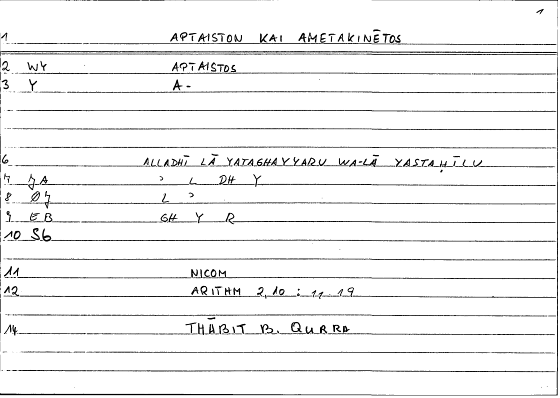 1
1 APTAISTON KAI AMETAKINĒTOS
2 WY APTAISTOS
3 Y A-
6 ALLADHĪ LĀ YATAGHAYYARU WA-LĀ YASTAḤĪLU
7 JA ʾ L DH Y
8 ØJ L ʾ
9 EB GH Y R
10 S6
11 NICOM
12 ARITHM 2,10 : 11 19
14 THĀBIT B. QURRA